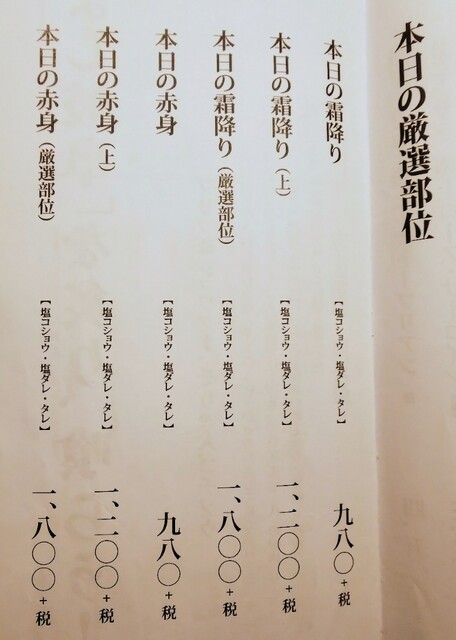 本日の厳選部位
本日の霜降り 【塩コショウ・塩ダレ・タレ】 九八〇+税
本日の霜降り（上） 【塩コショウ・塩ダレ・タレ】 一、二〇〇+税
本日の霜降り（厳選部位） 【塩コショウ・塩ダレ・タレ】 一、八〇〇+税
本日の赤身 【塩コショウ・塩ダレ・タレ】 九八〇+税
本日の赤身（上） 【塩コショウ・塩ダレ・タレ】 一、二〇〇+税
本日の赤身（厳選部位） 【塩コショウ・塩ダレ・タレ】 一、八〇〇+税